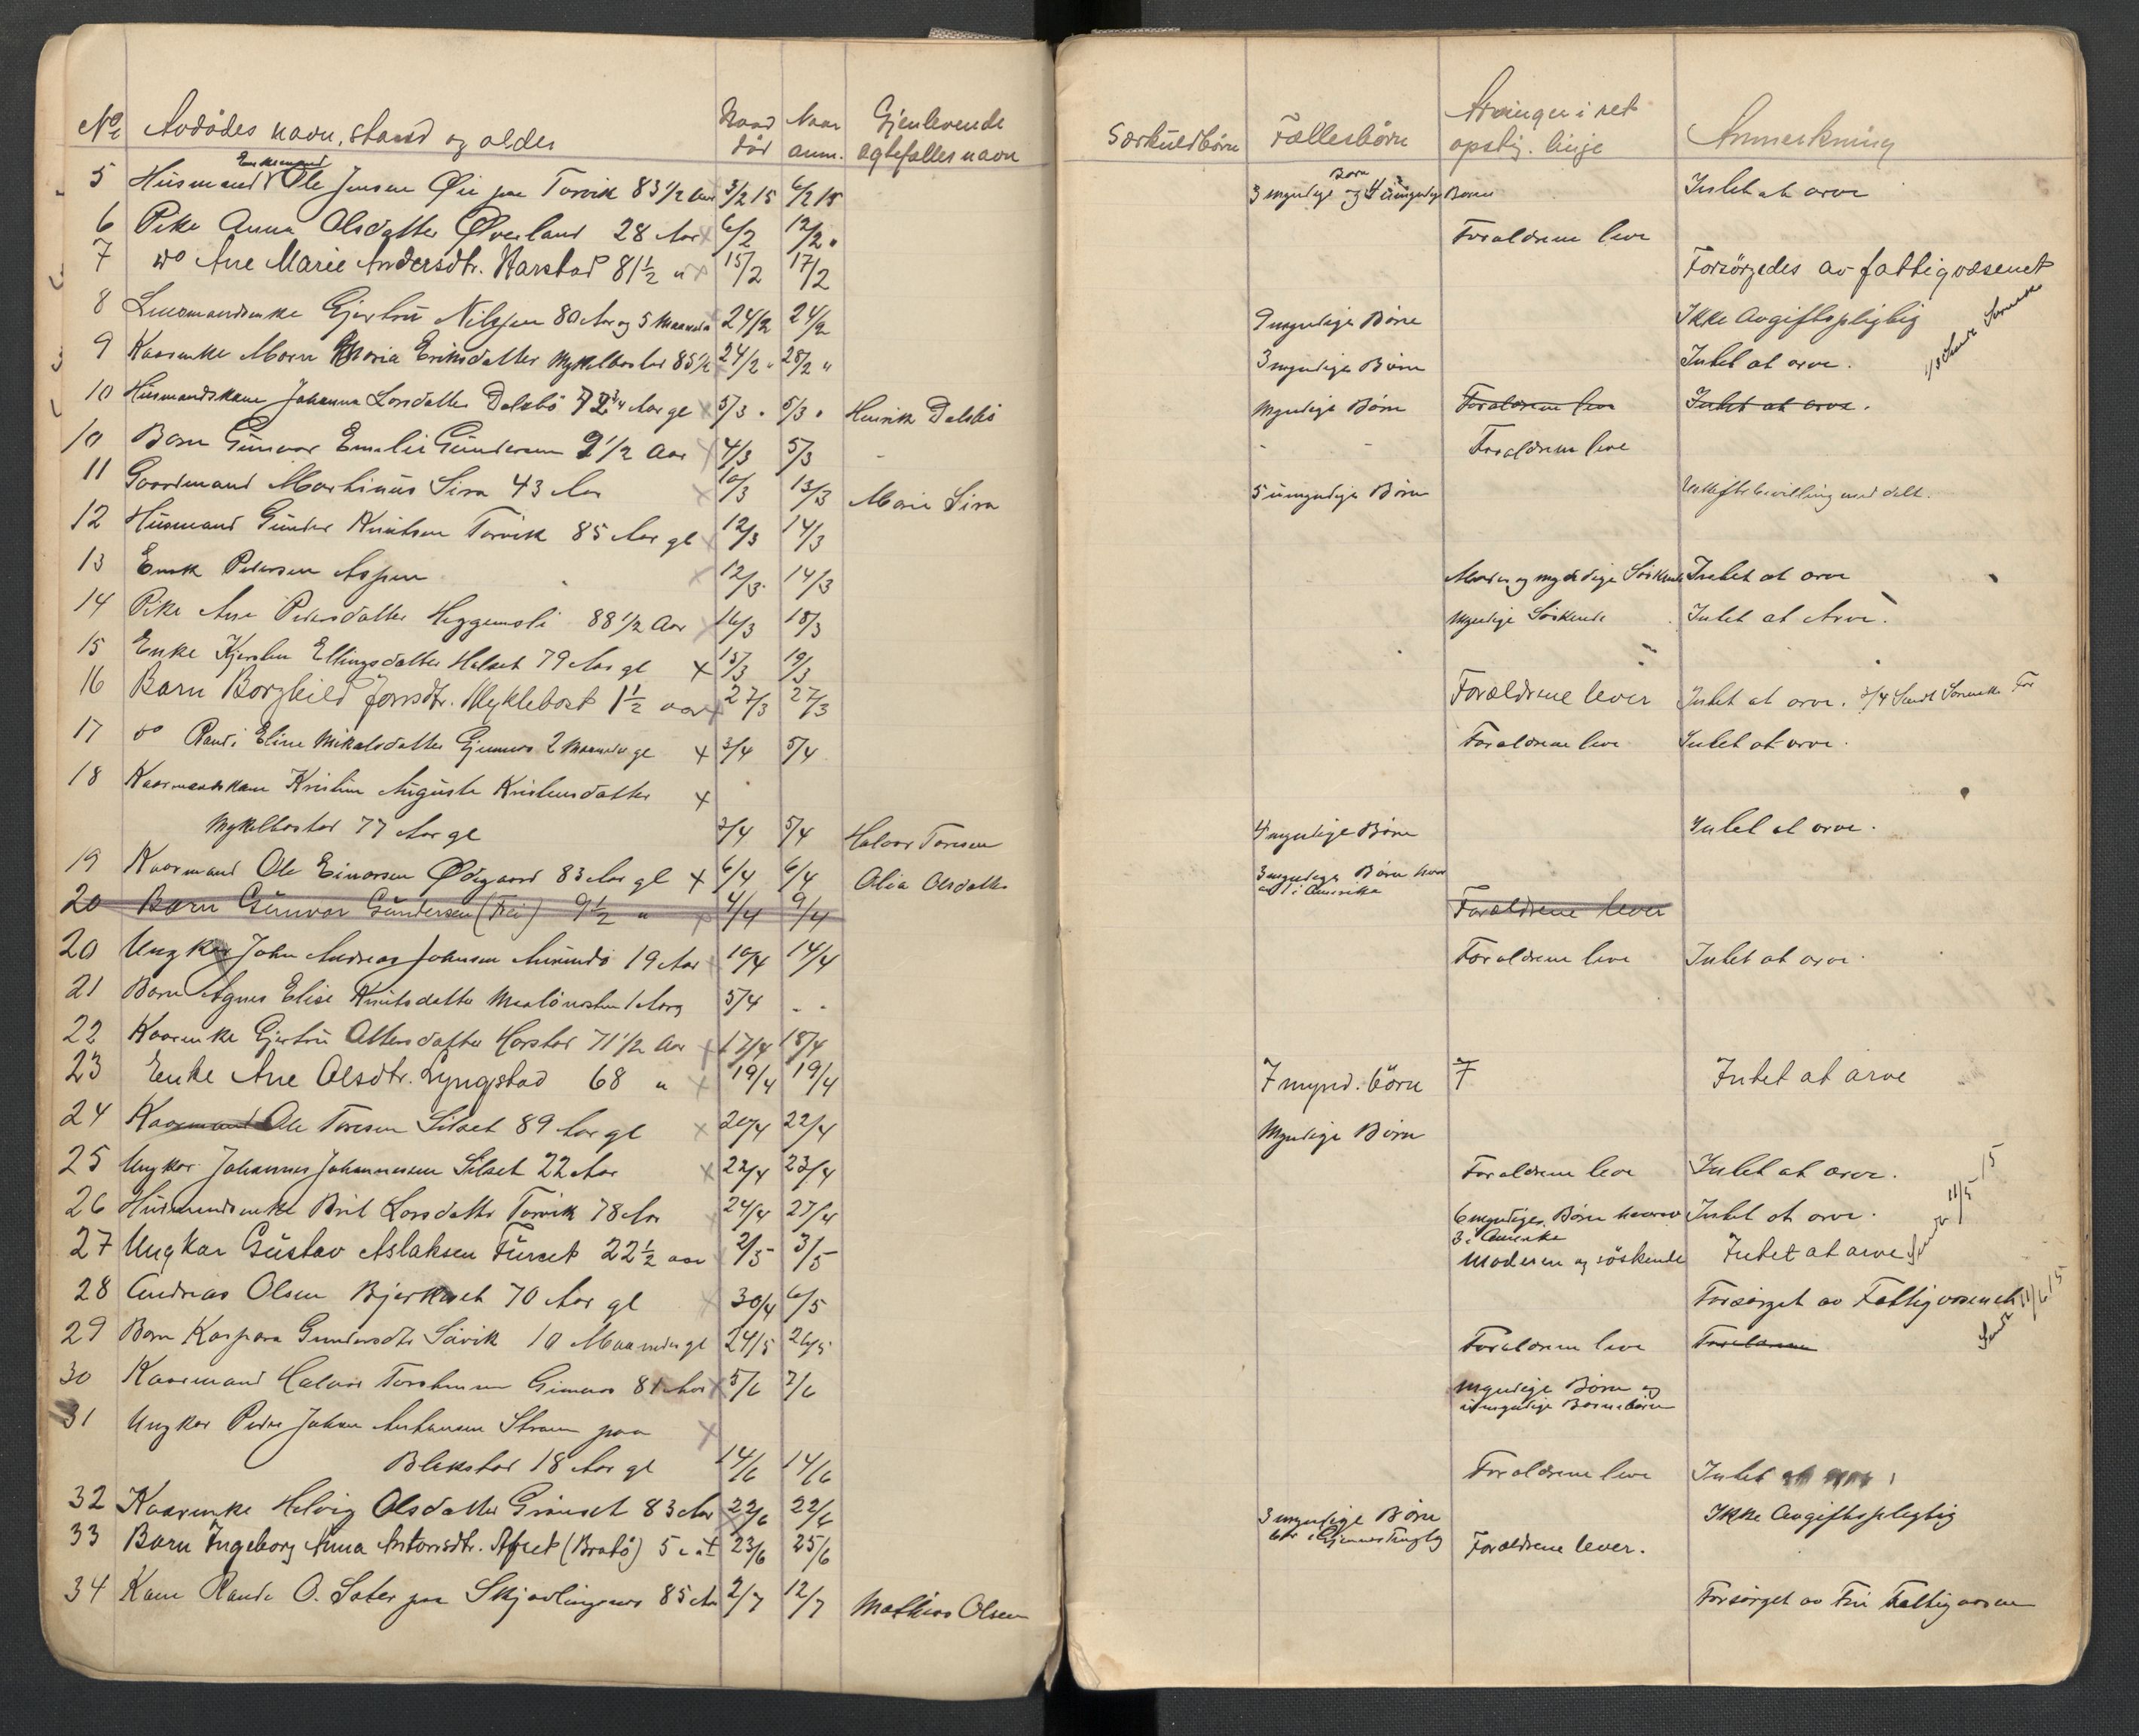 No Avdødes navn, stand og alder Naar død Naar anm. Gjenlevende ægtefælles navn Særkuldbörn Fællesbörn Arvinger i ret opstig. linje Anmerkning
5 Husmand Enkemand Ole Jensen Øie paa Torvik 83 1/2 Aar 3/2 15 6/2 15 3 myndige og 4 umyndige Børn Børn Intet at arve
6 Pike Anna Olsdatter Øverland 28 Aar 6/2 12/2 " Forældrene leve
7 do Ane Marie Andersdtr. Harstad 81 1/2 " 15/2 17/2 Forsörgedes av fattigvæsenet
8 Lensmandsenke Gjertru Nilssen 80 Aar og 5 Maaneder 24/2 24/2 9 myndige Børn Ikke Avgiftspligtig
9 Kaarenke Maren Maria Eriksdatter Myklebostad 85 1/2 24/2 " 25/2 " 3 myndige Børn Intet at arve.
10 Husmandskone Johanna Larsdatter Dalsbö 72 3/4 Aar gl 5/3 " 5/3 " Henrik Dalsbö Myndige Børn Forældrene leve Intet at arve.
10 Barn Gunvor Emelie Gundersen 9 1/2 Aar 4/3 5/3 - - - Forældrene leve
11 Gaardmand Martinus Sira 43 Aar 10/3 13/3 Marie Sira 5 umyndige Børn Uskiftebevilling med delt.
12 Husmand Gunder Knutsen Torvik 85 Aar gl 12/3 14/3
13 Enok Pedersen Aspen 12/3 14/3 Moder og myndige Söskende Intet at arve
14 Pike Ane Pedersdatter Heggemsli 88 1/2 Aar 16/3 18/3 Myndige Söskende Intet at Arve.
15 Enke Kjersten Ellingsdatter Helset 79 Aar gl 15/3 19/3
16 Barn Borghild Jonsdtr. Myklebost 1 1/2 aar 27/3 27/3 Forældrene lever Intet at arve. 3/4 Sendt
17 do Randi Eline Mikalsdatter Gjemnes 2 Maaneder gl 3/4 5/4 Forældrene leve Intet at arve.
18 Kaarmandskone Kristine Auguste Kristensdatter
Myklebostad 77 Aar gl 3/4 5/4 Halvor Toresen 4 myndige Børn Intet at arve.
19 Kaarmand Ole Einarsen Ødegaard 83 Aar gl 6/4 6/4 Olia Olsdatter 3 myndige Børn hvorav 1 i Amerika
20 Barn Gunvor Gundersen (Frei) 9 1/2 " 4/4 9/4 Forældrene lever
20 Ungkar John Andreas Johnsen Aurundö 19 Aar 10/4 14/4 Forældrene leve Intet at arve.
21 Barn Agnes Elise Knutsdatter 1 Aar 5/4 - -
22 Kaarenke Gjertru Ottersdatter Harstad 71 1/2 Aar 17/4 18/4
23 Enke Ane Olsdtr. Lyngstad 68 " 19/4 19/4 7 mynd. börn 7 Intet at arve
24 Kaarmand Ole Toresen Silset 89 Aar gl 20/4 22/4 Myndige Børn
25 Ungkar Johannes Johannessen Silset 22 Aar 22/4 23/4 Forældrene leve Intet at arve.
26 Husmandsenke Brit Larsdatter Torvik 78 Aar 24/4 27/4 6 myndige Børn hvorav 3 i Amerika Intet at arve.
27 Ungkar Gustav Aslaksen Furset 22 1/2 aar 2/5 3/5 Moderen og söskende Intet at arve
28 Andreas Olsen Bjerkeset 70 Aar gl 30/4 6/5 Forsörget av Fattigvæsenet Sendt 11/6 15
29 Barn Kaspara Gundersdtr Sævik 10 Maaneder gl 24/5 26/5 Forældrene leve Forældrene
30 Kaarmand Halvor Torstensen Gimnes 81 Aar 5/6 7/6 Myndige Børn og umyndige Barnebörn
31 Ungkar Peder Johan Strøm paa
Blakstad 18 Aar gl 14/6 14/6 Forældrene leve Intet at arve
32 Kaarenke Helvig Olsdatter Grønset 83 Aar 22/6 22/6 3 myndige Børn Ikke Avgiftspligtig
33 Barn Ingeborg Anna Antonsdtr. (Bratö) 5 23/6 25/6 Forældrene lever.
34 Kone Rande O. Sæter paa 85 Aar 2/7 12/7 Mathias Olsen Forsörget av Frei Fattigvæsen